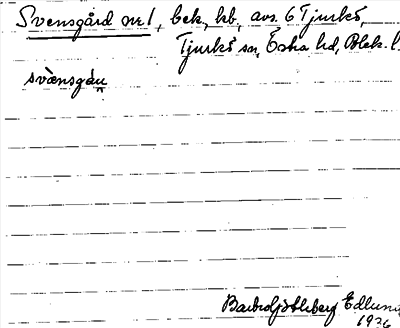 Svensgård nr 1, bek, hb, avs. 6 Tjurkö,
Tjurkö sn, Östra hd, Blek. l.
svænsgáɳ
Edlund
1936